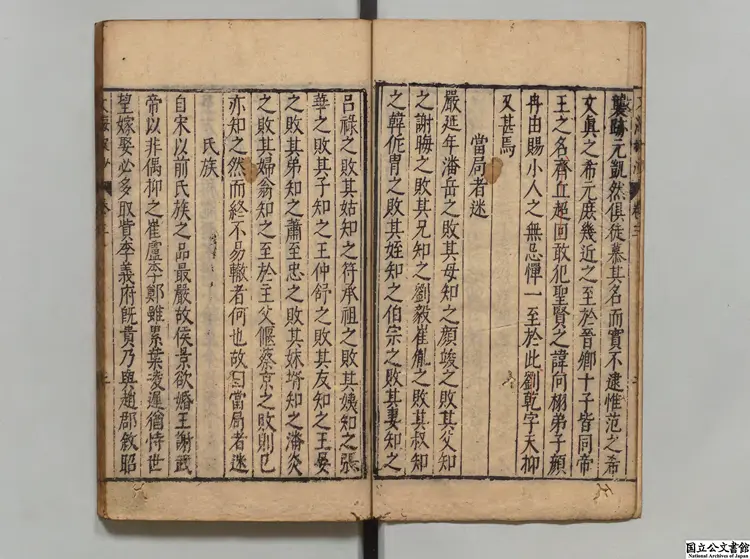 元凱然俱徒慕其名而實不逮惟范之希
文真之希元庶幾近之至於晉鄉十子皆同帝
王之名齊丘超回敢犯聖賢之諱向栩弟子顏
冉由賜小人之無忌憚一至於此劉乾字天抑
又甚焉
當局者迷
嚴延年潘岳之敗其母知之顏竣之敗其父知
之謝晦之敗其兄知之劉毅崔胤之敗其叔知
之韓侂胄之敗其姪知之伯宗之敗其妻知之
呂祿之敗其姑知之符承祖之敗其姨知之張
華之敗其子知之王仲舒之敗其友知之王晏
之敗其弟知之蕭至忠之敗其妹壻知之潘炎
之敗其婦翁知之至於主父偃蔡京之敗則已
亦知之然而終不易轍者何也故曰當局者迷
氏族
自宋以前氏族之品最嚴故侯景欲婚王謝武
帝以非偶抑之崔盧李鄭雖累葉凌遲猶恃世
望嫁娶必多取貲李義府既貴乃與趙郡敘昭
国立公文書館
National Archives of Japan